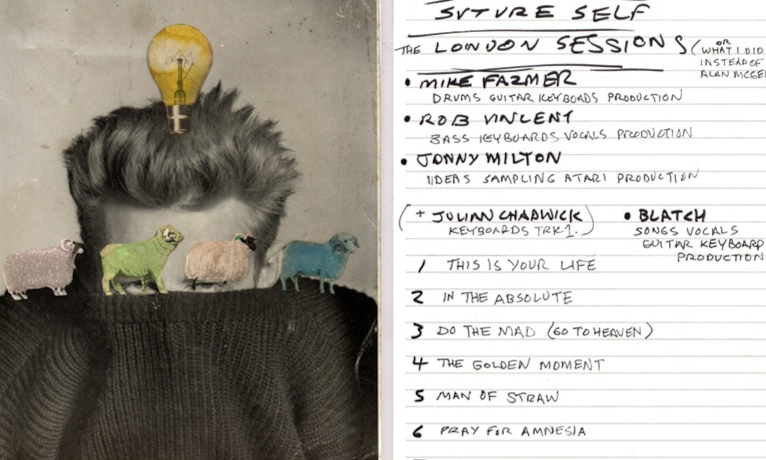 SUTURE SELF
THE LONDON SESSIONS (OR
WHAT I DID
INSTEAD OF
ALAN MCGEE
• MIKE FARMER
DRUMS GUITAR KEYBOARDS PRODUCTION
• ROB VINCENT
BASS KEYBOARDS VOCALS PRODUCTION
• JONNY MILTON
IDEAS SAMPLING ATARI PRODUCTION
(+ JULIAN CHADWICK)
KEYBOARDS TRK 1.
• BLATCH
SONGS VOCALS
GUITAR KEYBOARD
PRODUCTION
1 THIS IS YOUR LIFE
2 IN THE ABSOLUTE
3 DO THE MAD (GO TO HEAVEN)
4 THE GOLDEN MOMENT
5 MAN OF STRAW
6 PRAY FOR AMNESIA